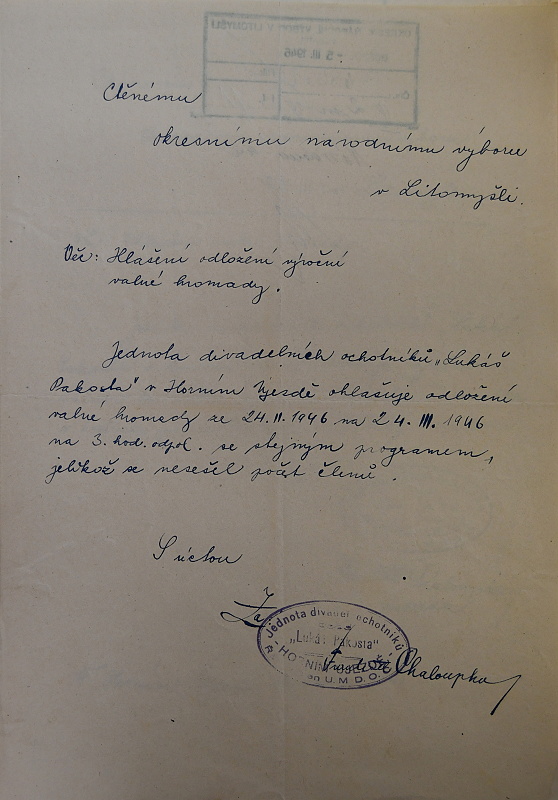 Ctěnému
okresnímu národnímu výboru
v Litomyšli.
Věc: Hlášení odložení výroční
valné hromady.
Jednota divadelních ochotníků „Lukáš
Pakosta" v Horním Újezdě ohlašuje odložení
valné hromady ze 24.II. 1946 na 24. III. 1946
na 3. hod. odpol. se stejným programem,
jelikož se nesešel počet členů.
S úctou
Za
Jednota divadel. ochotníků
„Lukáš Pakosta"
U.M.D.O.
Chaloupka